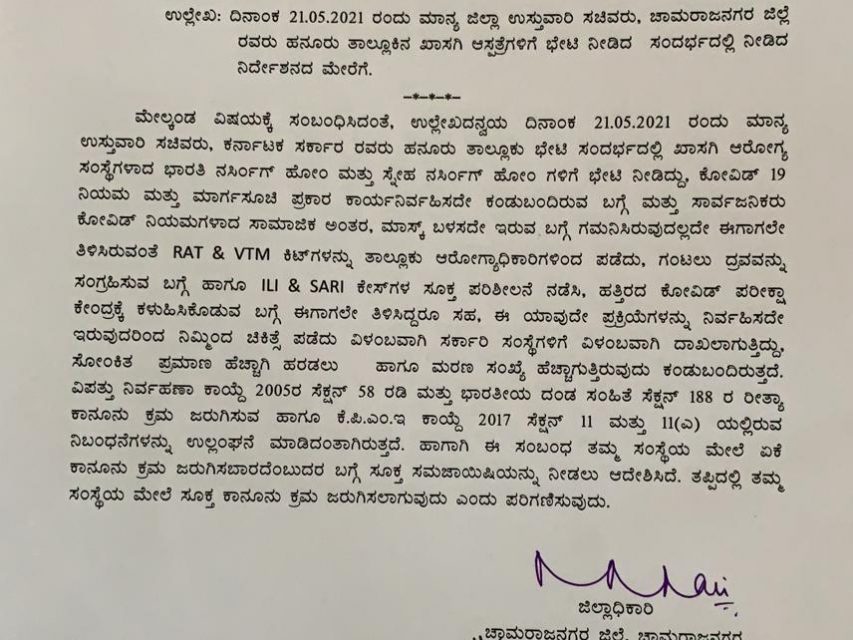 ಉಲ್ಲೇಖ: ದಿನಾಂಕ 21.05.2021 ರಂದು ಮಾನ್ಯ ಜಿಲ್ಲಾ ಉಸ್ತುವಾರಿ ಸಚಿವರು, ಚಾಮರಾಜನಗರ ಜಿಲ್ಲೆ
ರವರು ಹನೂರು ತಾಲ್ಲೂಕಿನ ಖಾಸಗಿ ಆಸ್ಪತ್ರೆಗಳಿಗೆ ಭೇಟಿ ನೀಡಿದ ಸಂದರ್ಭದಲ್ಲಿ ನೀಡಿದ
ನಿರ್ದೇಶನದ ಮೇರೆಗೆ.
–*–*–*–
ಮೇಲ್ಕಂಡ ವಿಷಯಕ್ಕೆ ಸಂಬಂಧಿಸಿದಂತೆ, ಉಲ್ಲೇಖದನ್ವಯ ದಿನಾಂಕ 21.05.2021 ರಂದು ಮಾನ್ಯ
ಉಸ್ತುವಾರಿ ಸಚಿವರು, ಕರ್ನಾಟಕ ಸರ್ಕಾರ ರವರು ಹನೂರು ತಾಲ್ಲೂಕು ಭೇಟಿ ಸಂದರ್ಭದಲ್ಲಿ ಖಾಸಗಿ ಆರೋಗ್ಯ
ಸಂಸ್ಥೆಗಳಾದ ಭಾರತಿ ನರ್ಸಿಂಗ್ ಹೋಂ ಮತ್ತು ಸ್ನೇಹ ನರ್ಸಿಂಗ್ ಹೋಂ ಗಳಿಗೆ ಭೇಟಿ ನೀಡಿದ್ದು, ಕೋವಿಡ್ 19
ನಿಯಮ ಮತ್ತು ಮಾರ್ಗಸೂಚಿ ಪ್ರಕಾರ ಕಾರ್ಯನಿರ್ವಹಿಸದೇ ಕಂಡುಬಂದಿರುವ ಬಗ್ಗೆ ಮತ್ತು ಸಾರ್ವಜನಿಕರು
ಕೋವಿಡ್ ನಿಯಮಗಳಾದ ಸಾಮಾಜಿಕ ಅಂತರ, ಮಾಸ್ಕ್ ಬಳಸದೇ ಇರುವ ಬಗ್ಗೆ ಗಮನಿಸಿರುವುದಲ್ಲದೇ ಈಗಾಗಲೇ
ತಿಳಿಸಿರುವಂತೆ RAT & VTM ಕಿಟ್‌ಗಳನ್ನು ತಾಲ್ಲೂಕು ಆರೋಗ್ಯಾಧಿಕಾರಿಗಳಿಂದ ಪಡೆದು, ಗಂಟಲು ದ್ರವವನ್ನು
ಸಂಗ್ರಹಿಸುವ ಬಗ್ಗೆ ಹಾಗೂ ILI & SARI ಕೇಸ್‌ಗಳ ಸೂಕ್ತ ಪರಿಶೀಲನೆ ನಡೆಸಿ, ಹತ್ತಿರದ ಕೋವಿಡ್ ಪರೀಕ್ಷಾ
ಕೇಂದ್ರಕ್ಕೆ ಕಳುಹಿಸಿಕೊಡುವ ಬಗ್ಗೆ ಈಗಾಗಲೇ ತಿಳಿಸಿದ್ದರೂ ಸಹ, ಈ ಯಾವುದೇ ಪ್ರಕ್ರಿಯೆಗಳನ್ನು ನಿರ್ವಹಿಸದೇ
ಇರುವುದರಿಂದ ನಿಮ್ಮಿಂದ ಚಿಕಿತ್ಸೆ ಪಡೆದು ವಿಳಂಬವಾಗಿ ಸರ್ಕಾರಿ ಸಂಸ್ಥೆಗಳಿಗೆ ವಿಳಂಬವಾಗಿ ದಾಖಲಾಗುತ್ತಿದ್ದು,
ಸೋಂಕಿತ ಪ್ರಮಾಣ ಹೆಚ್ಚಾಗಿ ಹರಡಲು ಹಾಗೂ ಮರಣ ಸಂಖ್ಯೆ ಹೆಚ್ಚಾಗುತ್ತಿರುವುದು ಕಂಡುಬಂದಿರುತ್ತದೆ.
ವಿಪತ್ತು ನಿರ್ವಹಣಾ ಕಾಯ್ದೆ 2005ರ ಸೆಕ್ಷನ್ 58 ರಡಿ ಮತ್ತು ಭಾರತೀಯ ದಂಡ ಸಂಹಿತೆ ಸೆಕ್ಷನ್ 188 ರ ರೀತ್ಯಾ
ಕಾನೂನು ಕ್ರಮ ಜರುಗಿಸುವ ಹಾಗೂ ಕೆ.ಪಿ.ಎಂ.ಇ ಕಾಯ್ದೆ 2017 ಸೆಕ್ಷನ್ 11 ಮತ್ತು 11(ಎ) ಯಲ್ಲಿರುವ
ನಿಬಂಧನೆಗಳನ್ನು ಉಲ್ಲಂಘನೆ ಮಾಡಿದಂತಾಗಿರುತ್ತದೆ. ಹಾಗಾಗಿ ಈ ಸಂಬಂಧ ತಮ್ಮ ಸಂಸ್ಥೆಯ ಮೇಲೆ ಏಕೆ
ಕಾನೂನು ಕ್ರಮ ಜರುಗಿಸಬಾರದೆಂಬುದರ ಬಗ್ಗೆ ಸೂಕ್ತ ಸಮಜಾಯಿಷಿಯನ್ನು ನೀಡಲು ಆದೇಶಿಸಿದೆ. ತಪ್ಪಿದಲ್ಲಿ ತಮ್ಮ
ಸಂಸ್ಥೆಯ ಮೇಲೆ ಸೂಕ್ತ ಕಾನೂನು ಕ್ರಮ ಜರುಗಿಸಲಾಗುವುದು ಎಂದು ಪರಿಗಣಿಸುವುದು.
ಜಿಲ್ಲಾಧಿಕಾರಿ
ಚಾಮರಾಜನಗರ ಜಿಲ್ಲೆ, ಚಾಮರಾಜನಗರ